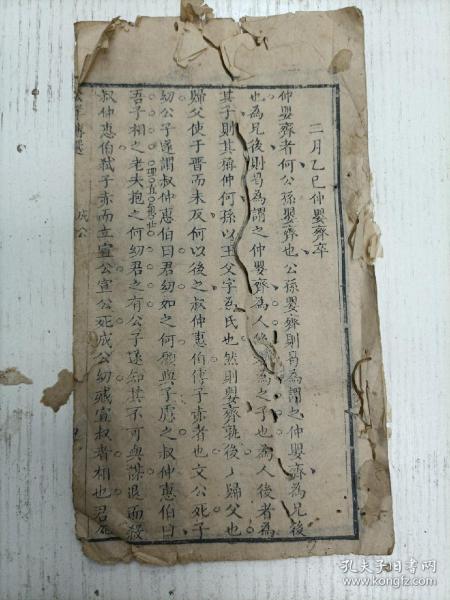 二月乙巳仲嬰齊卒
仲嬰齊者何公孫嬰齊也公孫嬰齊則曷為謂之仲嬰齊為兄後
也為兄後則曷為謂之仲嬰齊為人後者為之子也為人後者為
其子則其稱仲何孫以王父字為氏也然則嬰齊孰後後歸父也
歸父使于晋而未反何以後之叔仲惠伯傅子赤者也文公死子
幼公子遂謂叔仲惠伯曰君幼如之何願與子慮之叔仲惠伯曰
吾子相之老夫抱之何幼君之有公子遂知其不可與謀退而殺
叔仲惠伯弒子赤而立宣公宣公死成公幼臧宣叔者相也君死
成公
孔夫子旧书网
www.kongfz.com